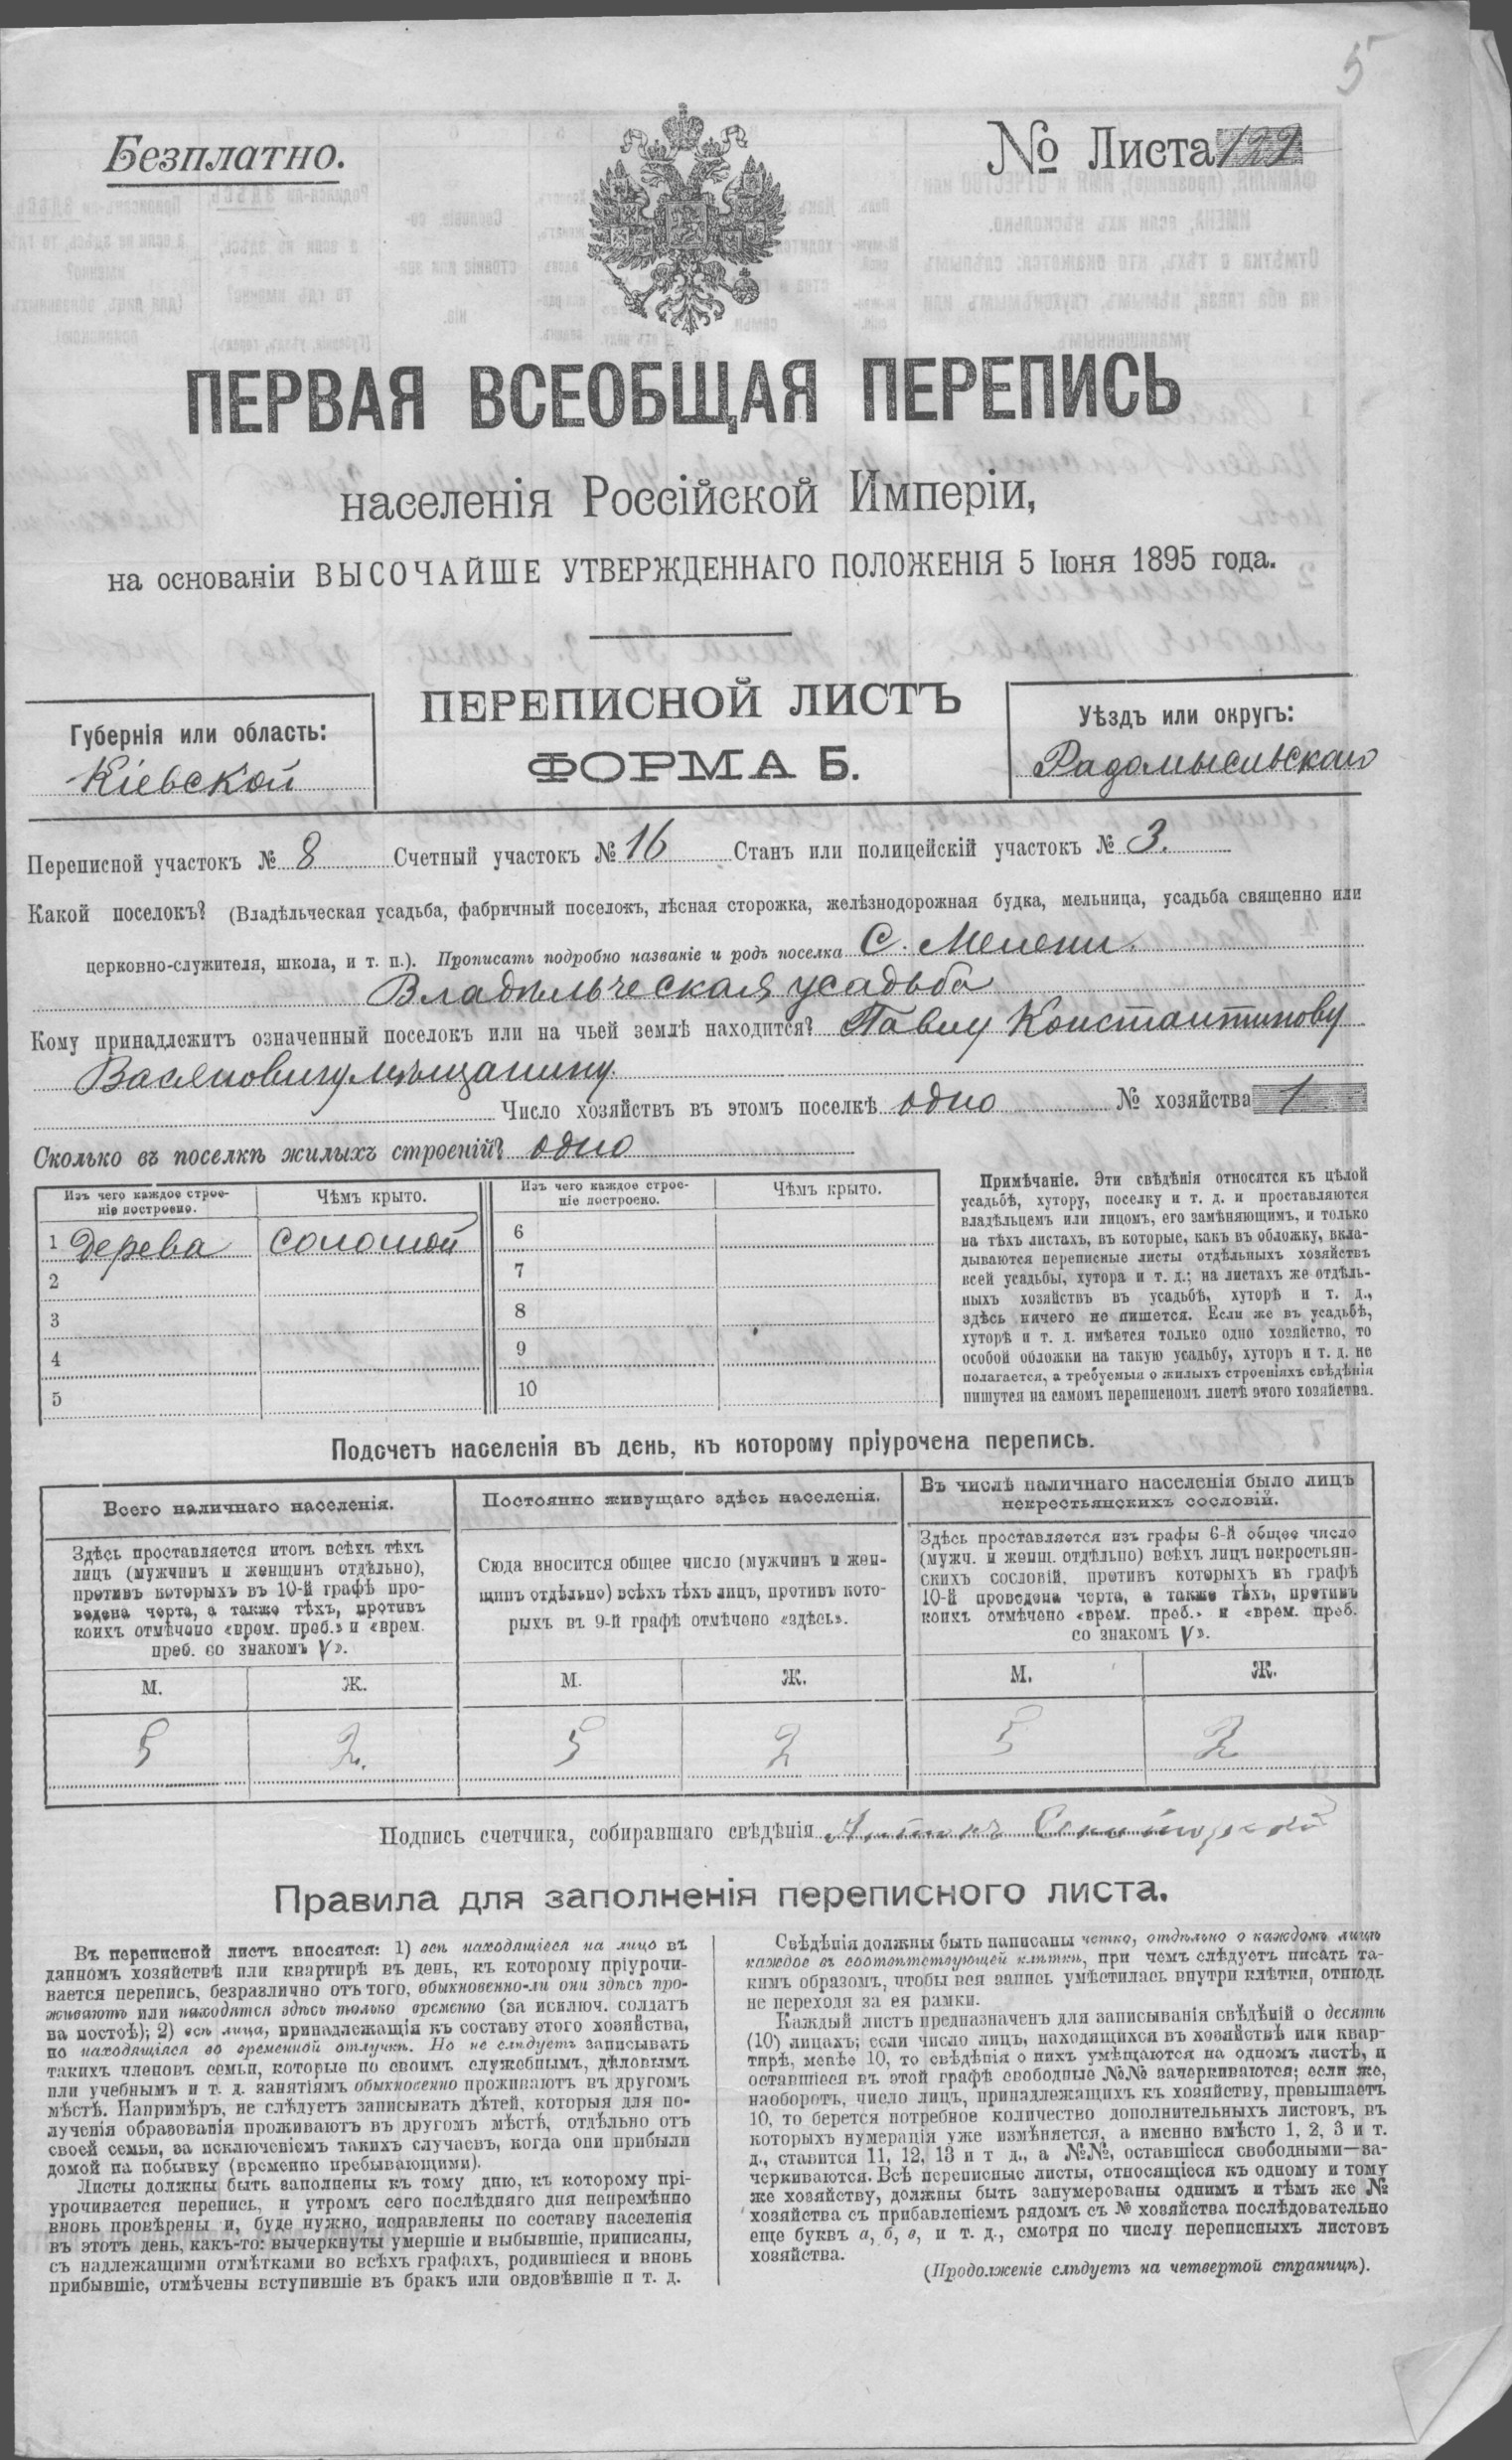 5
Безплатно.
№ Листа 122
ПЕРВАЯ ВСЕОБЩАЯ ПЕРЕПИСЬ
населенія Россійской Имперіи,
на основаніи ВЫСОЧАЙШЕ УТВЕРЖДЕННАГО ПОЛОЖЕНІЯ 5 Іюня 1895 года.
ПЕРЕПИСНОЙ ЛИСТЪ
ФОРМА Б.
Губернія или область:
Кіевской
Уѣздъ или округъ:
Радомысльскаго
Переписной участокъ № 8 Счетный участокъ № 16 Станъ или полицейскій участокъ № 3.
Какой поселокъ? (Владѣльческая усадьба, фабричный поселокъ, лѣсная сторожка, желѣзнодорожная будка, мельница, усадьба священно или
церковно-служителя, школа, и т. п.). Прописать подробно названіе и родъ поселка С. Мелени
Владѣльческая усадьба
Кому принадлежитъ означенный поселокъ или на чьей землѣ находится? Павлу Константинову
мѣщанину.
Число хозяйствъ въ этомъ поселкѣ одно № хозяйства 1
Сколько въ поселкѣ жилыхъ строеній? одно
Изъ чего каждое строе-
ніе построено.
Чѣмъ крыто.
Изъ чего каждое строе-
ніе построено.
Чѣмъ крыто.
1 Дерева соломой
2
3
4
5
6
7
8
9
10
Примѣчаніе. Эти свѣдѣнія относятся къ цѣлой
усадьбѣ, хутору, поселку и т. д. и проставляются
владѣльцемъ или лицомъ, его замѣняющимъ, и только
на тѣхъ листахъ, въ которые, какъ въ обложку, вкла-
дываются переписные листы отдѣльныхъ хозяйствъ
всей усадьбы, хутора и т. д.; на листахъ же отдѣль-
ныхъ хозяйствъ въ усадьбѣ, хуторѣ и т. д.,
здѣсь ничего не пишется. Если же въ усадьбѣ,
хуторѣ и т. д. имѣется только одно хозяйство, то
особой обложки на такую усадьбу, хуторъ и т. д. не
полагается, а требуемыя о жилыхъ строеніяхъ свѣдѣнія
пишутся на самомъ переписномъ листѣ этого хозяйства.
Подсчетъ населенія въ день, къ которому пріурочена перепись.
Всего наличнаго населенія.
Здѣсь проставляется итогъ всѣхъ тѣхъ
лицъ (мужчинъ и женщинъ отдѣльно),
противъ которыхъ въ 10-й графѣ про-
ведена черта, а также тѣхъ, противъ
коихъ отмѣчено «врем. преб.» и «врем.
преб. со знакомъ V».
М. Ж.
5 2.
Постоянно живущаго здѣсь населенія.
Сюда вносится общее число (мужчинъ и жен-
щинъ отдѣльно) всѣхъ тѣхъ лицъ, противъ кото-
рыхъ въ 9-й графѣ отмѣчено «здѣсь».
М. Ж.
5 2
Въ числѣ наличнаго населенія было лицъ
некрестьянскихъ сословій.
Здѣсь проставляется изъ графы 6-й общее число
(мужч. и женщ. отдѣльно) всѣхъ лицъ некрестьян-
скихъ сословій, противъ которыхъ въ графѣ
10-й проведена черта, а также тѣхъ, противъ
коихъ отмѣчено «врем. преб.» и «врем. преб.
со знакомъ V».
М. Ж.
5 2
Подпись счетчика, собиравшаго свѣдѣнія
Правила для заполненія переписного листа.
Въ переписной листъ вносятся: 1) всѣ находящіеся на лицо въ
данномъ хозяйствѣ или квартирѣ въ день, къ которому пріурочи-
вается перепись, безразлично отъ того, обыкновенно-ли они здѣсь про-
живаютъ или находятся здѣсь только временно (за исключ. солдатъ
на постоѣ); 2) всѣ лица, принадлежащія къ составу этого хозяйства,
но находящіяся во временной отлучкѣ. Но не слѣдуетъ записывать
такихъ членовъ семьи, которые по своимъ служебнымъ, дѣловымъ
или учебнымъ и т. д. занятіямъ обыкновенно проживаютъ въ другомъ
мѣстѣ. Напримѣръ, не слѣдуетъ записывать дѣтей, которыя для по-
лученія образованія проживаютъ въ другомъ мѣстѣ, отдѣльно отъ
своей семьи, за исключеніемъ такихъ случаевъ, когда они прибыли
домой на побывку (временно пребывающими).
Листы должны быть заполнены къ тому дню, къ которому прі-
урочивается перепись, и утромъ сего послѣдняго дня непремѣнно
вновь провѣрены и, буде нужно, исправлены по составу населенія
въ этотъ день, какъ-то: вычеркнуты умершіе и выбывшіе, приписаны,
съ надлежащими отмѣтками во всѣхъ графахъ, родившіеся и вновь
прибывшіе, отмѣчены вступившіе въ бракъ или овдовѣвшіе и т. д.
Свѣдѣнія должны быть написаны четко, отдѣльно о каждомъ лицѣ
каждое въ соотвѣтствующей клѣткѣ, при чемъ слѣдуетъ писать та-
кимъ образомъ, чтобы вся запись умѣстилась внутри клѣтки, отнюдь
не переходя за ея рамки.
Каждый листъ предназначенъ для записыванія свѣдѣній о десяти
(10) лицахъ; если число лицъ, находящихся въ хозяйствѣ или квар-
тирѣ, менѣе 10, то свѣдѣнія о нихъ умѣщаются на одномъ листѣ, и
оставшіеся въ этой графѣ свободные №№ зачеркиваются; если же,
наоборотъ, число лицъ, принадлежащихъ къ хозяйству, превышаетъ
10, то берется потребное количество дополнительныхъ листовъ, въ
которыхъ нумерація уже измѣняется, а именно вмѣсто 1, 2, 3 и т.
д., ставится 11, 12, 13 и т д., а №№, оставшіеся свободными—за-
черкиваются. Всѣ переписные листы, относящіеся къ одному и тому
же хозяйству, должны быть занумерованы однимъ и тѣмъ же №
хозяйства съ прибавленіемъ рядомъ съ № хозяйства послѣдовательно
еще буквъ а, б, в, и т. д., смотря по числу переписныхъ листовъ
хозяйства.
(Продолженіе слѣдуетъ на четвертой страницѣ).